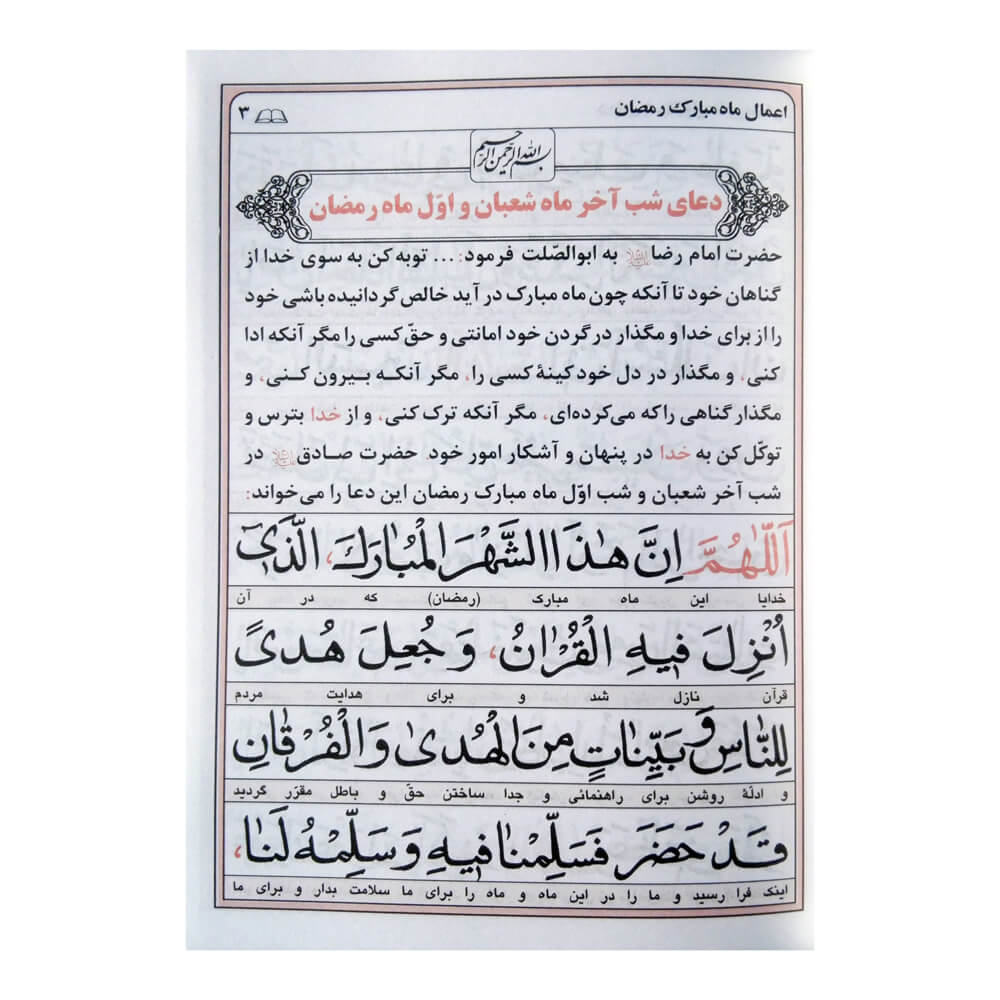 اعمال ماه مبارک رمضان ۳
بسم الله الرحمن الرحیم
دعای شب آخر ماه شعبان و اوّل ماه رمضان
حضرت امام رضا به ابوالصّلت فرمود: ... توبه کن به سوی خدا از
گناهان خود تا آنکه چون ماه مبارک در آید خالص گردانیده باشی خود
را از برای خدا و مگذار در گردن خود امانتی و حقّ کسی را مگر آنکه ادا
کنی، و مگذار در دل خود کینهٔ کسی را، مگر آنکه بیرون کنی، و
مگذار گناهی را که می‌کرده‌ای، مگر آنکه ترک کنی، و از خدا بترس و
توکّل کن به خدا در پنهان و آشکار امور خود. حضرت صادق در
شب آخر شعبان و شب اوّل ماه مبارک رمضان این دعا را می‌خواند:
اَللّٰهُمَّ اِنَّ هٰذَا الشَّهْرَ الْمُبٰارَكَ، الَّذی
خدایا این ماه مبارک (رمضان) که در آن
اُنْزِلَ فیهِ الْقُرْاٰنُ، وَ جُعِلَ هُدىً
قرآن نازل شد و برای هدایت مردم
لِلنّٰاسِ وَ بَیِّنٰاتٍ مِنَ الْهُدىٰ وَ الْفُرْقٰانِ
و ادلّهٔ روشن برای راهنمائی و جدا ساختن حقّ و باطل مقرّر گردید
قَدْ حَضَرَ فَسَلِّمْنٰا فیهِ وَ سَلِّمْهُ لَنٰا،
اینک فرا رسید و ما را در این ماه و ماه را برای ما سلامت بدار و برای ما